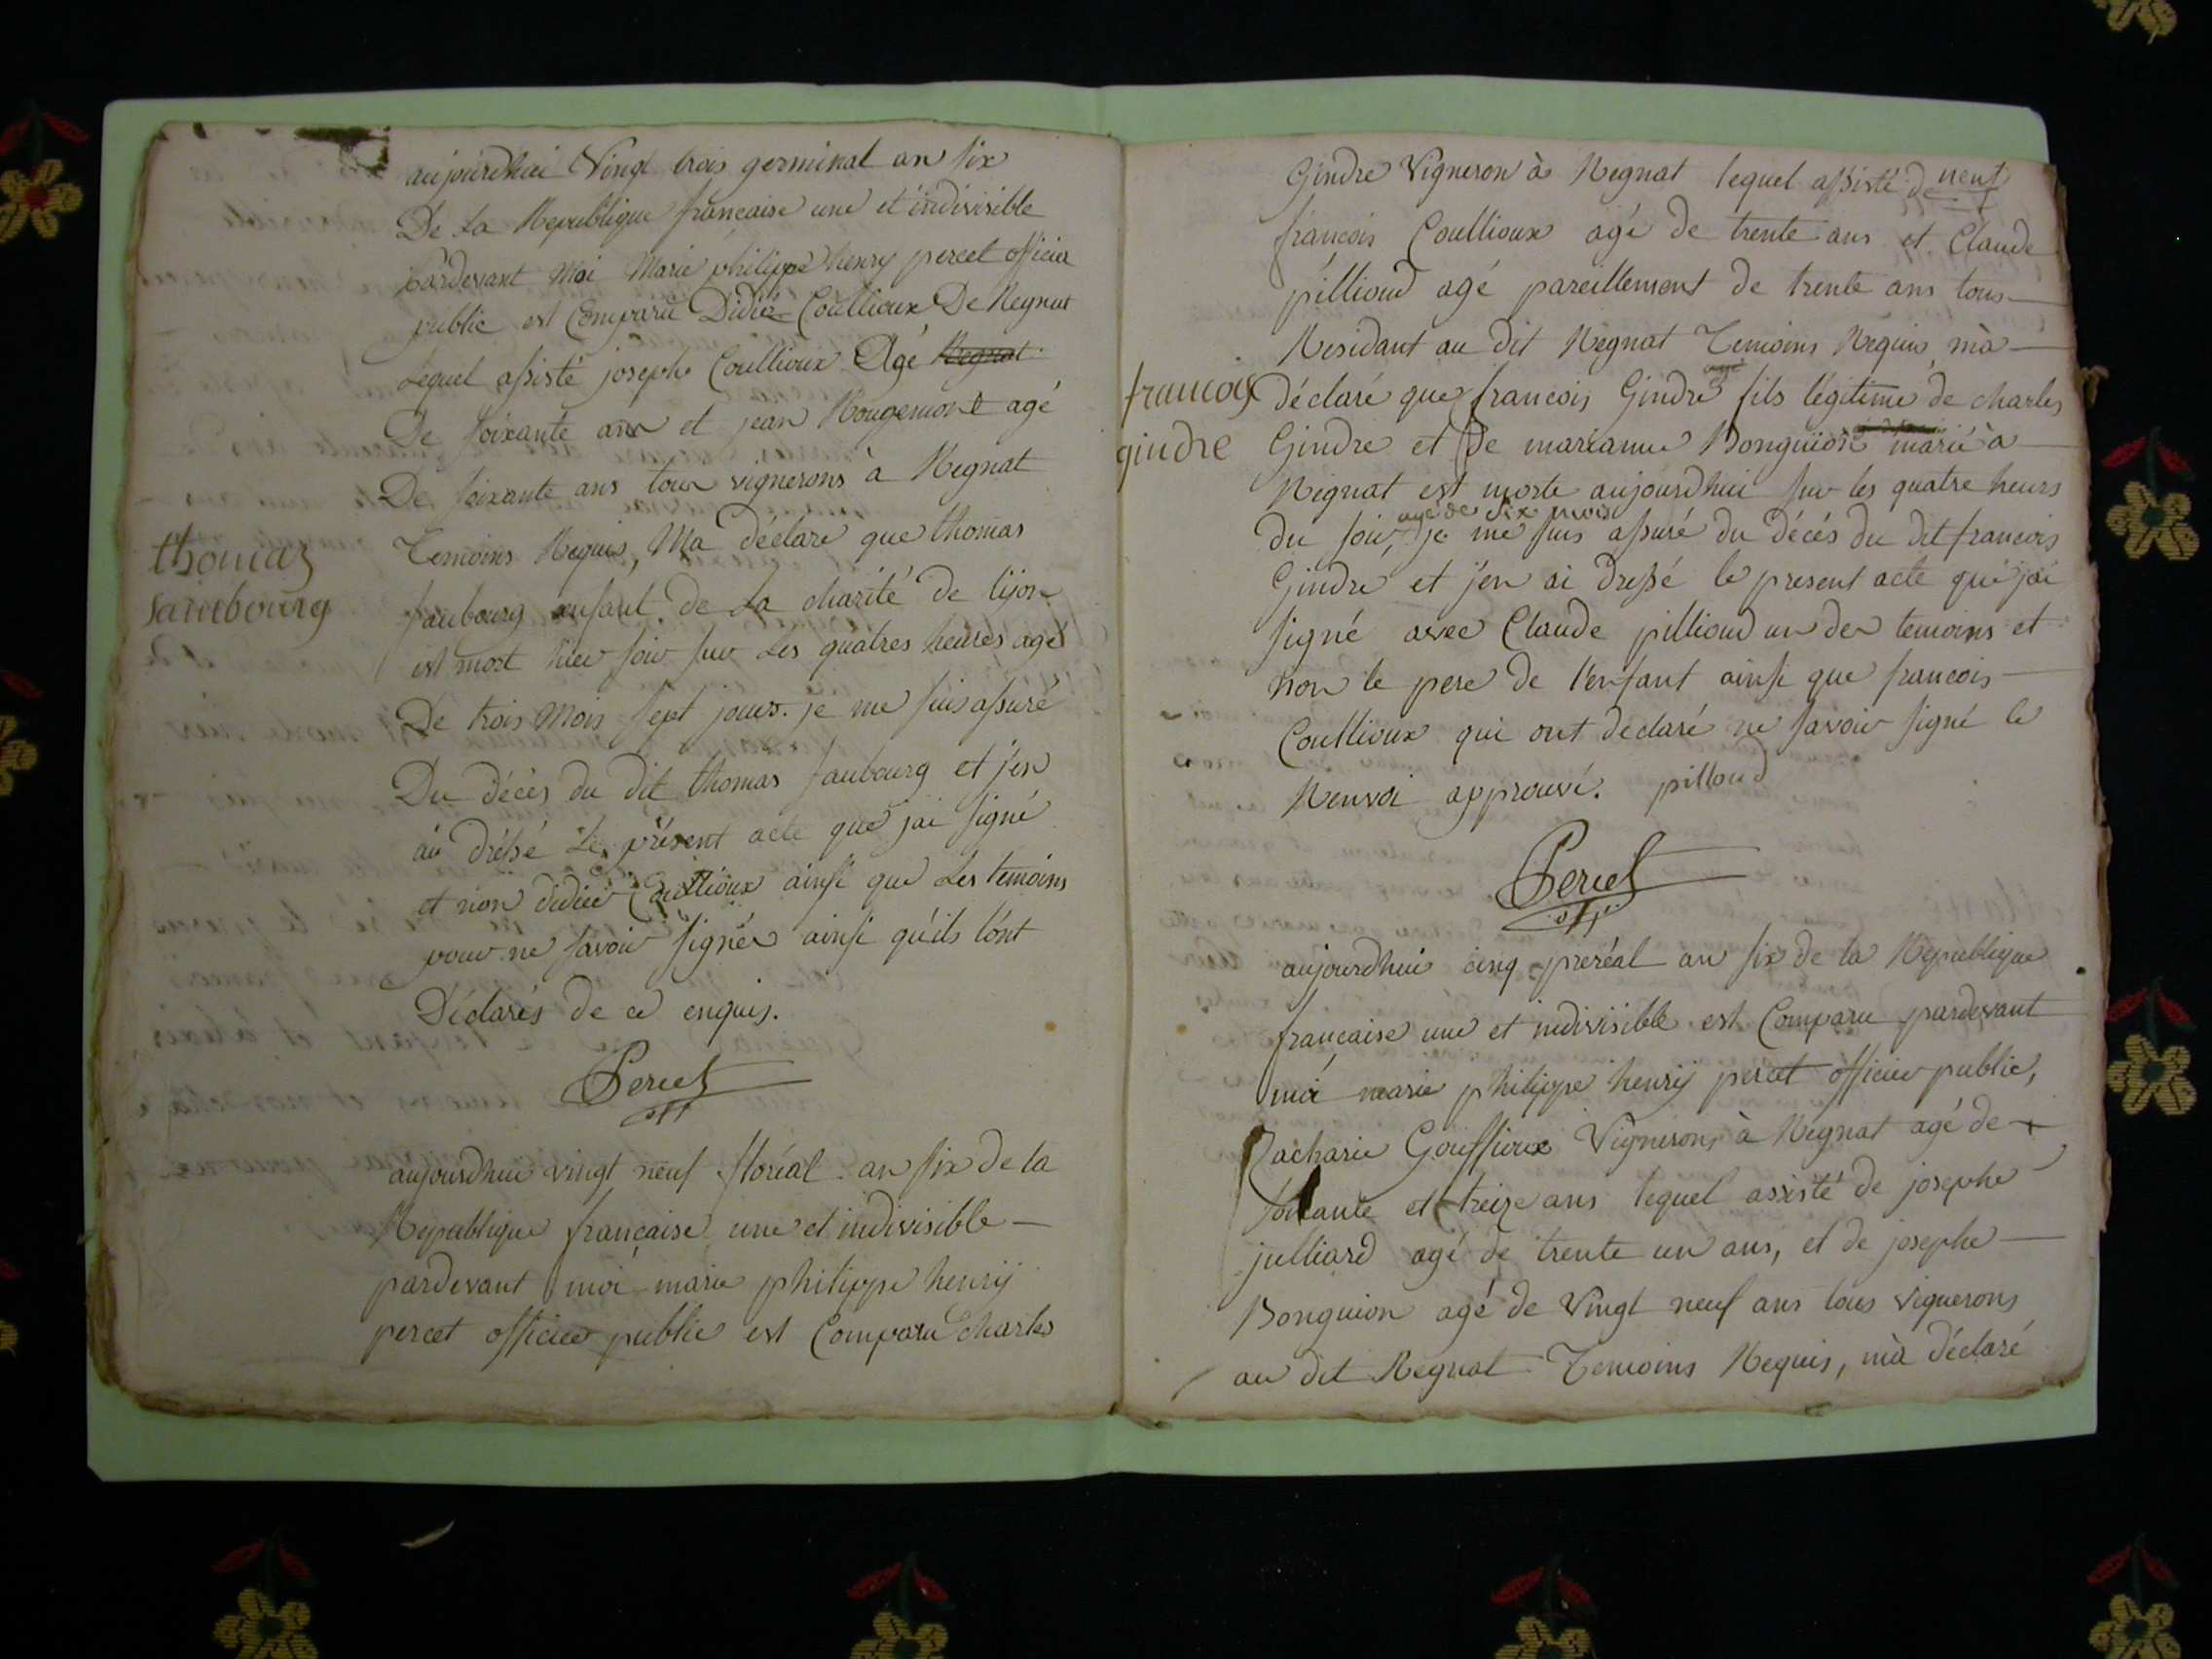 aujourdhui Vingt trois germinal an six
De La Republique francaise une et indivisible
pardevant Moi Marie philippe henry percet officier
public est Comparu Didié Coullioux De Regnat
Lequel assisté joseph Coullioux Agé Regnat
De soixante ans et jean Rougemont agé
De soixante ans tous vignerons à Regnat
thomas
Temoins Requis, Ma déclare que thomas
saubourg
saubourg enfant de La charité de lijon
est mort hier soir sur Les quatres heures agé
De trois Mois sept jours. je me suis assuré
Du décès du dit thomas saubourg et j'en
ai dréssé Le présent acte que jai signé
et non didier Coullioux ainsi que Les temoins
pour ne savoir signér ainsi qu'ils l'ont
Déclarés de ce enquis.
Percet
aujourdhui vingt neuf floréal an six de la
Republique francaise une et indivisible
pardevant moi marie philippe henrij
percet officier public est Comparu Charles
Gindre Vigneron à Regnat lequel assisté de neuf
francois Coullioux agé de trente ans et Claude
pillioud agé pareillement de trente ans tous
Residant au dit Regnat Temoins Requis mà
francois
déclaré que francois Gindre agé fils légitime de charles
gindre
Gindre et de marianne Bonguion marié à
Regnat est morte aujourdhui sur les quatre heurs
agé de six mois
du soir, je me suis assuré du décés du dit francois
Gindre et j'en ai dressé le present acte que jai
signé avec Claude pillioud un des temoins et
non le pere de l'enfant ainsi que francois
Coullioux qui ont declaré ne savoir signé le
Renvoi approuvé. pilloud
Percet
aujourdhui cinq preréal an six de la Republique
francaise une et indivisible est Comparu pardevant
moi marie philippe henrij percet officier public,
Zacharie Gouffioux Vignerons à Regnat agé de
soixante et treize ans lequel assisté de josephe
julliard agé de trente un ans, et de josephe
Bonguion agé de Vingt neuf ans tous vignerons
au dit Regnat Temoins Requis, mà déclaré